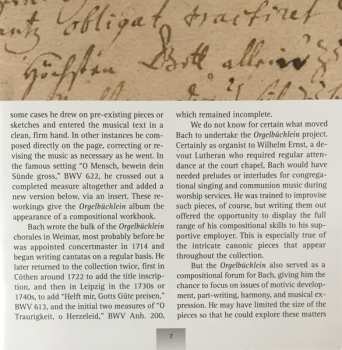 obligat tractiret
Höchsten Gott allein
some cases he drew on pre-existing pieces or
sketches and entered the musical text in a
clean, firm hand. In other instances he com-
posed directly on the page, correcting or re-
vising the music as necessary as he went. In
the famous setting "O Mensch, bewein dein
Sünde gross," BWV 622, he crossed out a
completed measure altogether and added a
new version below, via an insert. These re-
workings give the Orgelbüchlein album the
appearance of a compositional workbook.
Bach wrote the bulk of the Orgelbüchlein
chorales in Weimar, most probably before he
was appointed concertmaster in 1714 and
began writing cantatas on a regular basis. He
later returned to the collection twice, first in
Cöthen around 1722 to add the title inscrip-
tion, and then in Leipzig in the 1730s or
1740s, to add "Helft mir, Gotts Güte preisen,"
BWV 613, and the initial two measures of "O
Traurigkeit, o Herzeleid," BWV Anh. 200,
which remained incomplete.
We do not know for certain what moved
Bach to undertake the Orgelbüchlein project.
Certainly as organist to Wilhelm Ernst, a de-
vout Lutheran who required regular atten-
dance at the court chapel, Bach would have
needed preludes or interludes for congrega-
tional singing and communion music during
worship services. He was trained to improvise
such pieces, of course, but writing them out
offered the opportunity to display the full
range of his compositional skills to his sup-
portive employer. This is especially true of
the intricate canonic pieces that appear
throughout the collection.
But the Orgelbüchlein also served as a
compositional forum for Bach, giving him the
chance to focus on issues of motivic develop-
ment, part-writing, harmony, and musical ex-
pression. He may have limited the size of the
pieces so that he could explore these matters
7